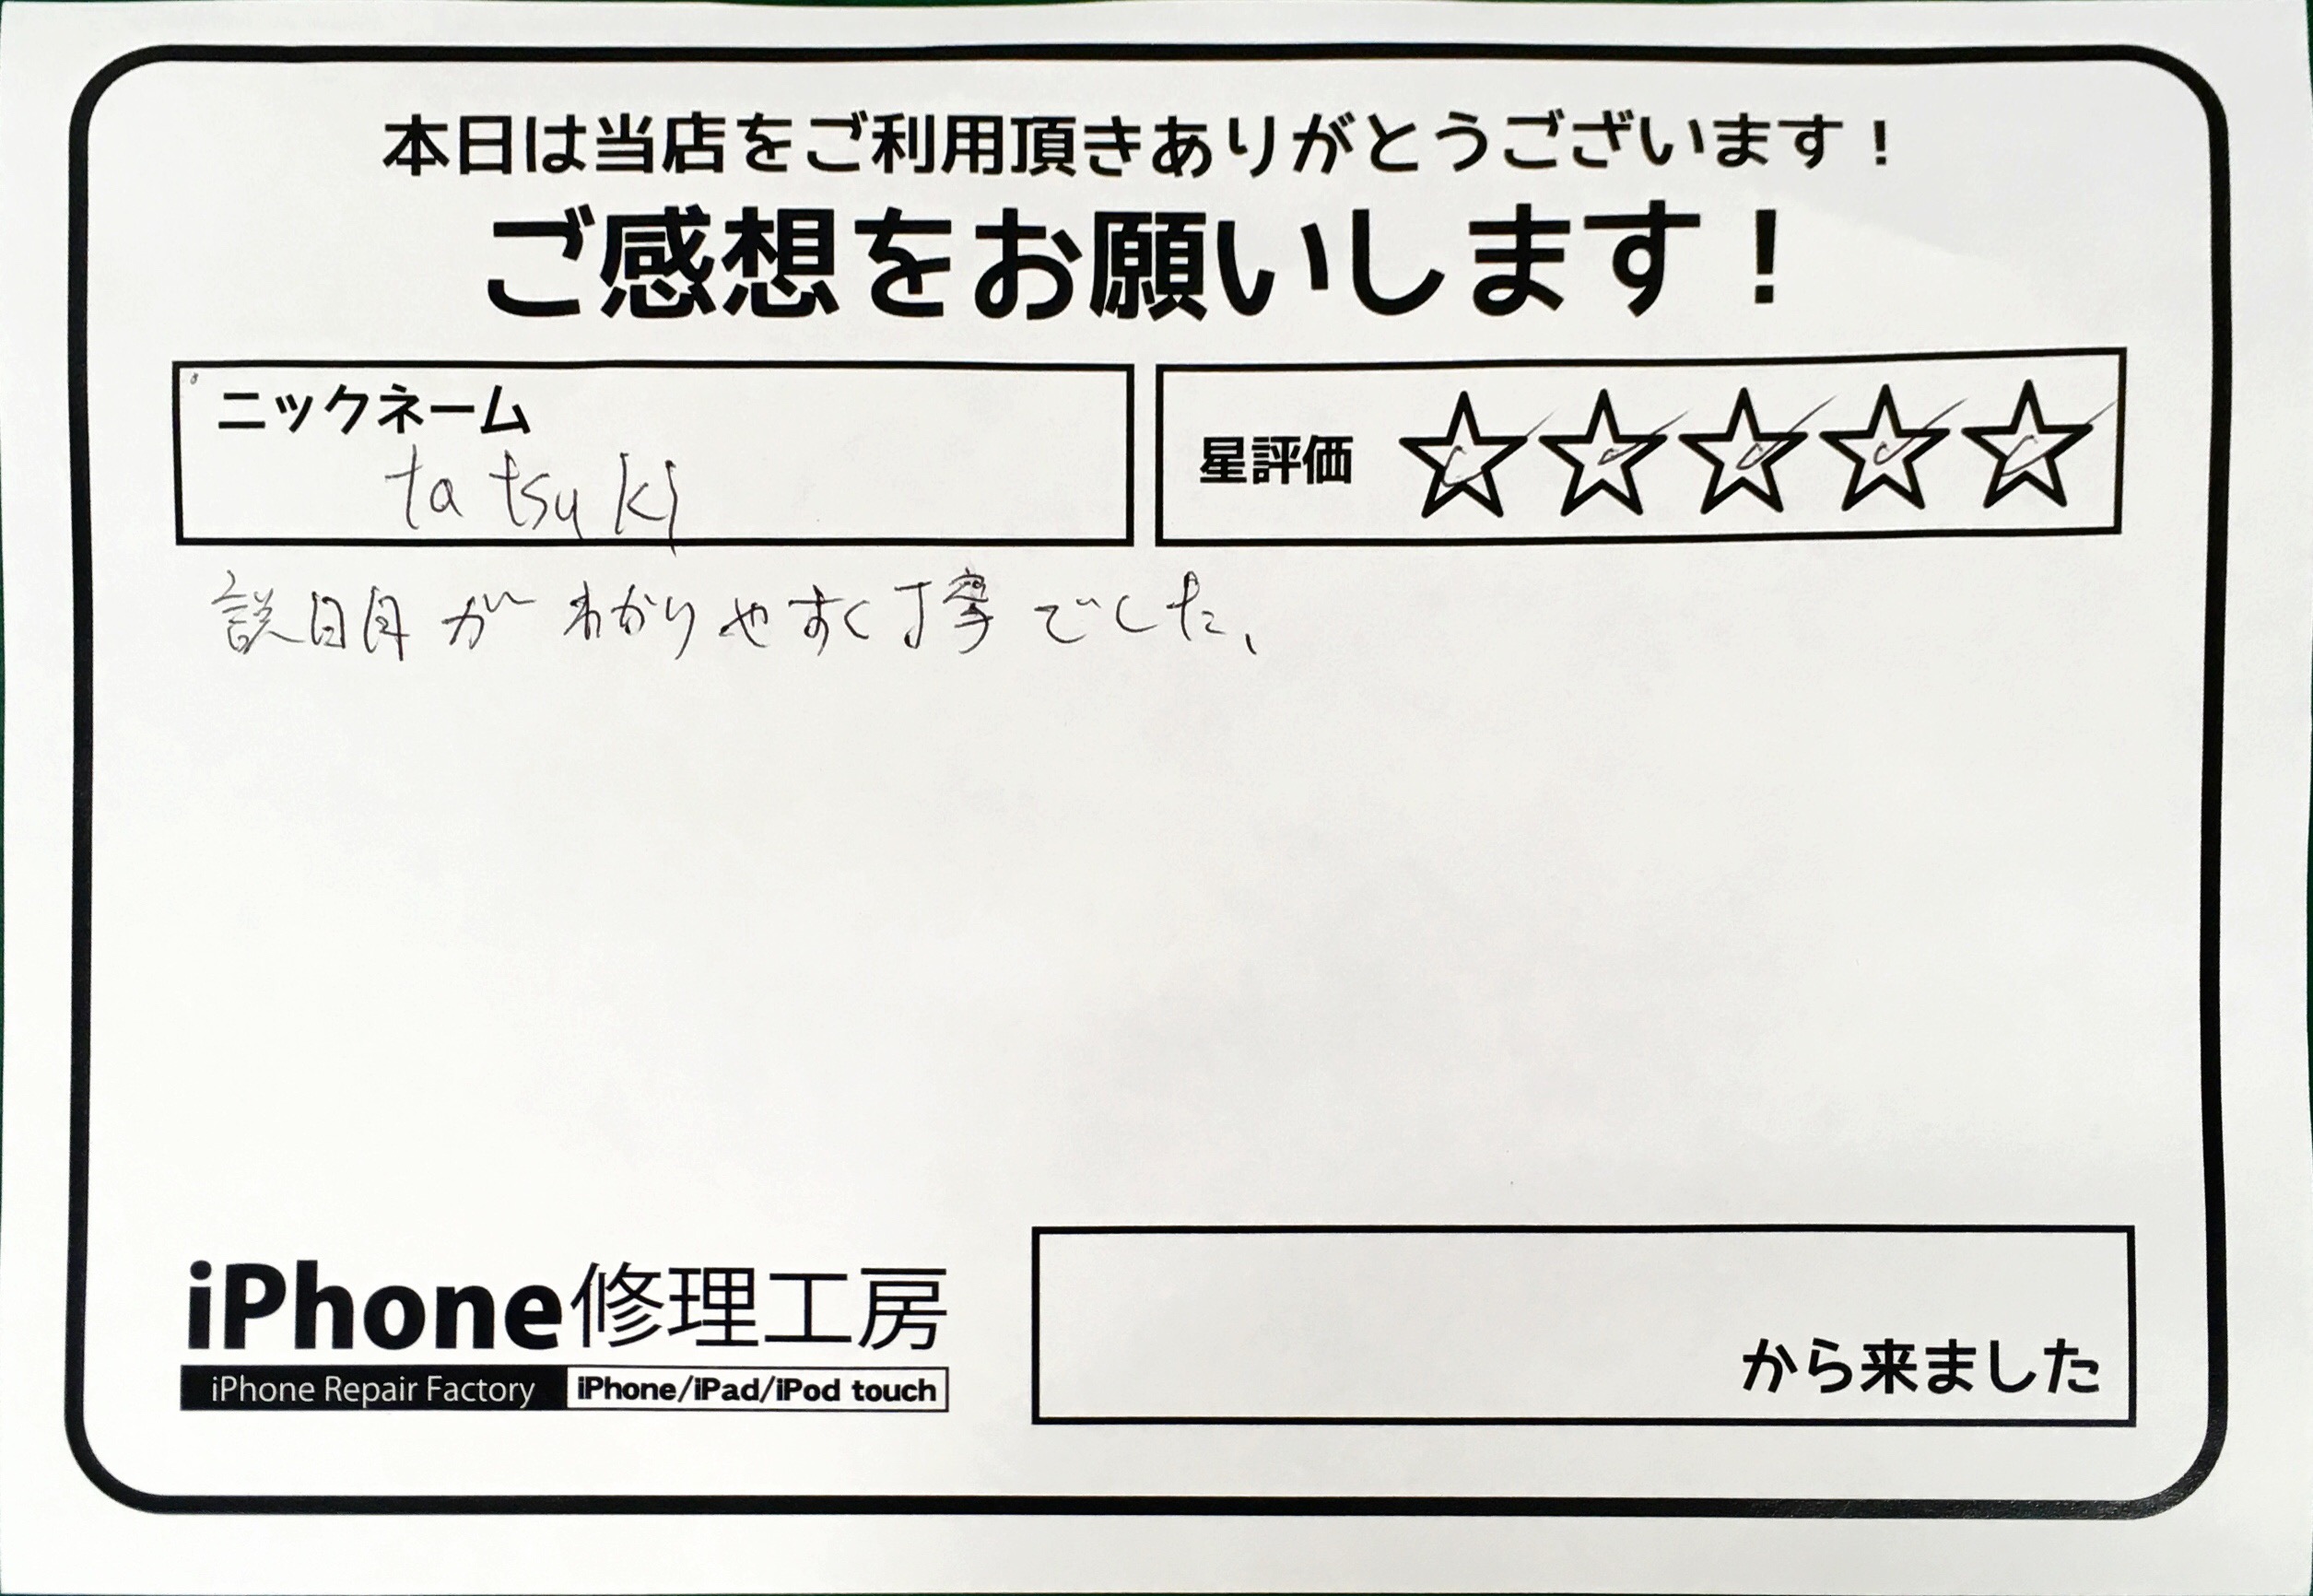 本日は当店をご利用頂きありがとうございます！
ご感想をお願いします！
ニックネーム
tatsuki
星評価 ☆☆☆☆☆
説明がわかりやすく丁寧でした、
iPhone修理工房
iPhone Repair Factory iPhone/iPad/iPod touch
から来ました